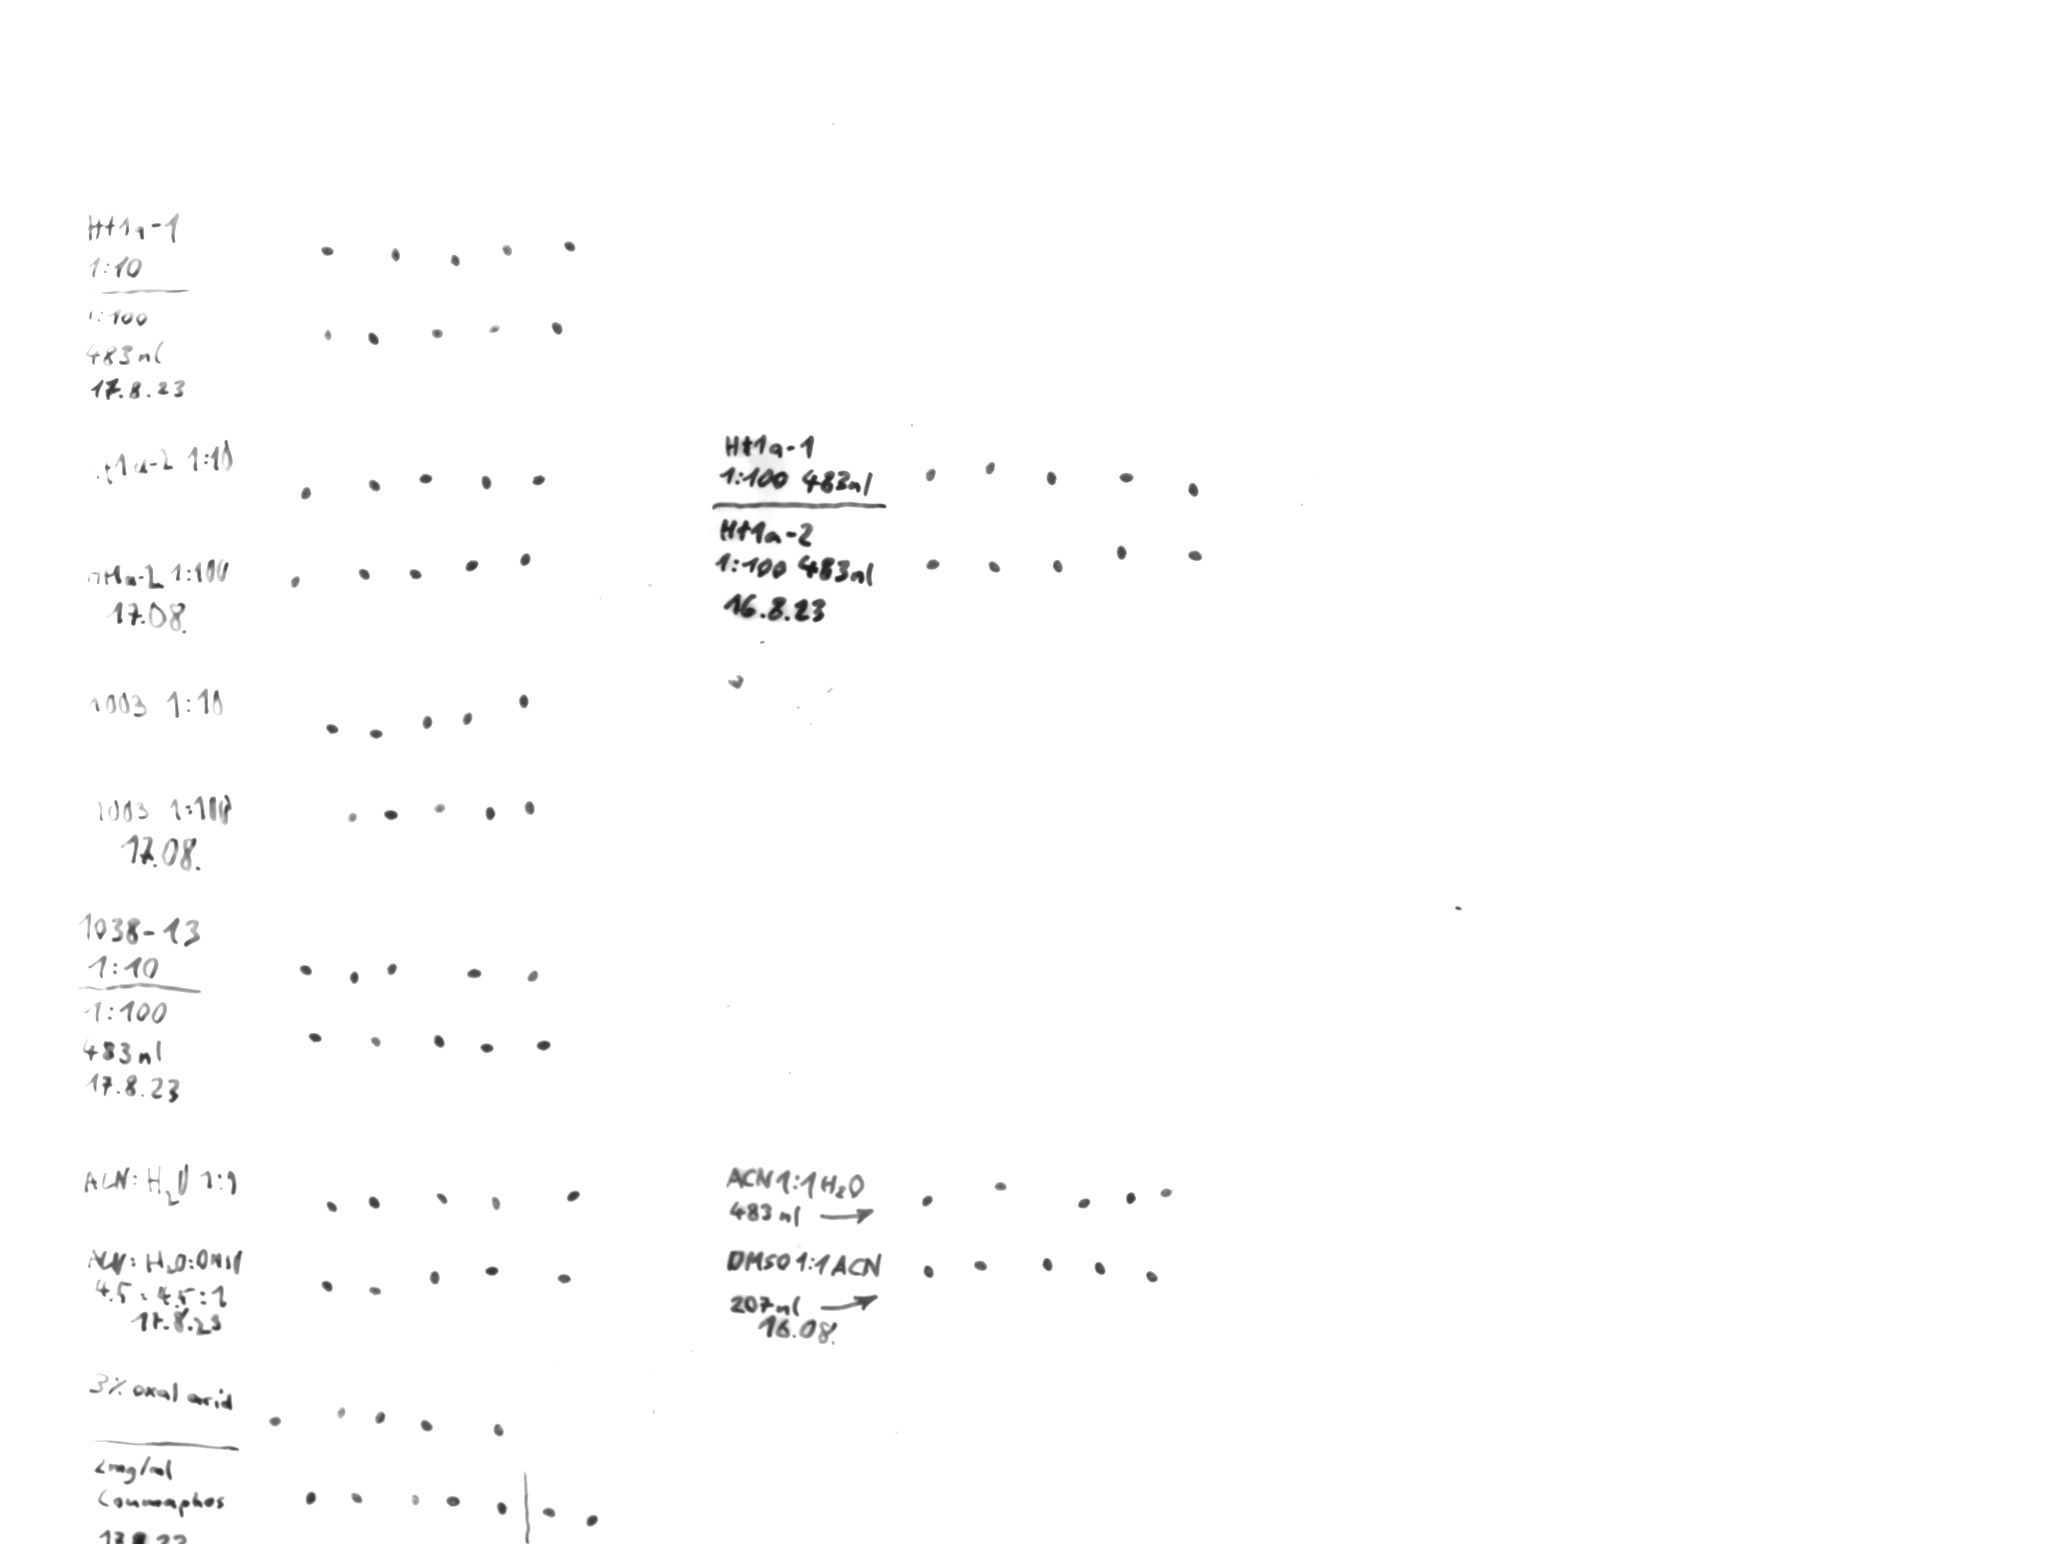 Ht1a-1
1:10
1:100
483nl
17.8.23
1a-2 1:10
Ht1a-2 1:100
17.08.
1003 1:10
1003 1:100
17.08.
1038-13
1:10
1:100
483nl
17.8.23
ACN:H2O 1:1
ACN:H2O:DMSO
4.5:4.5:1
17.8.23
3% oxal acid
2mg/ml
Coumaphos
Ht1a-1
1:100 483nl
Ht1a-2
1:100 483nl
16.8.23
ACN 1:1 H2O
483nl →
DMSO 1:1 ACN
207nl →
16.08.